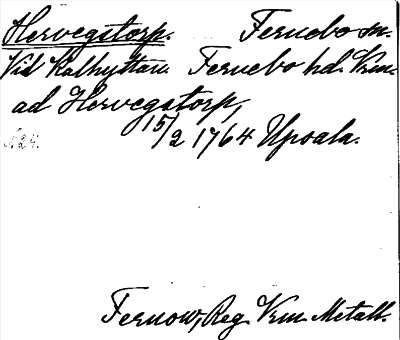 Hervegstorp. Fernebo sn.
Vid Kalhyttan Fernebo hd. Vrm.
ad Hervegstorp,
15/2 1764 Upsala.
Fernow, Reg. Vrm. Metall.